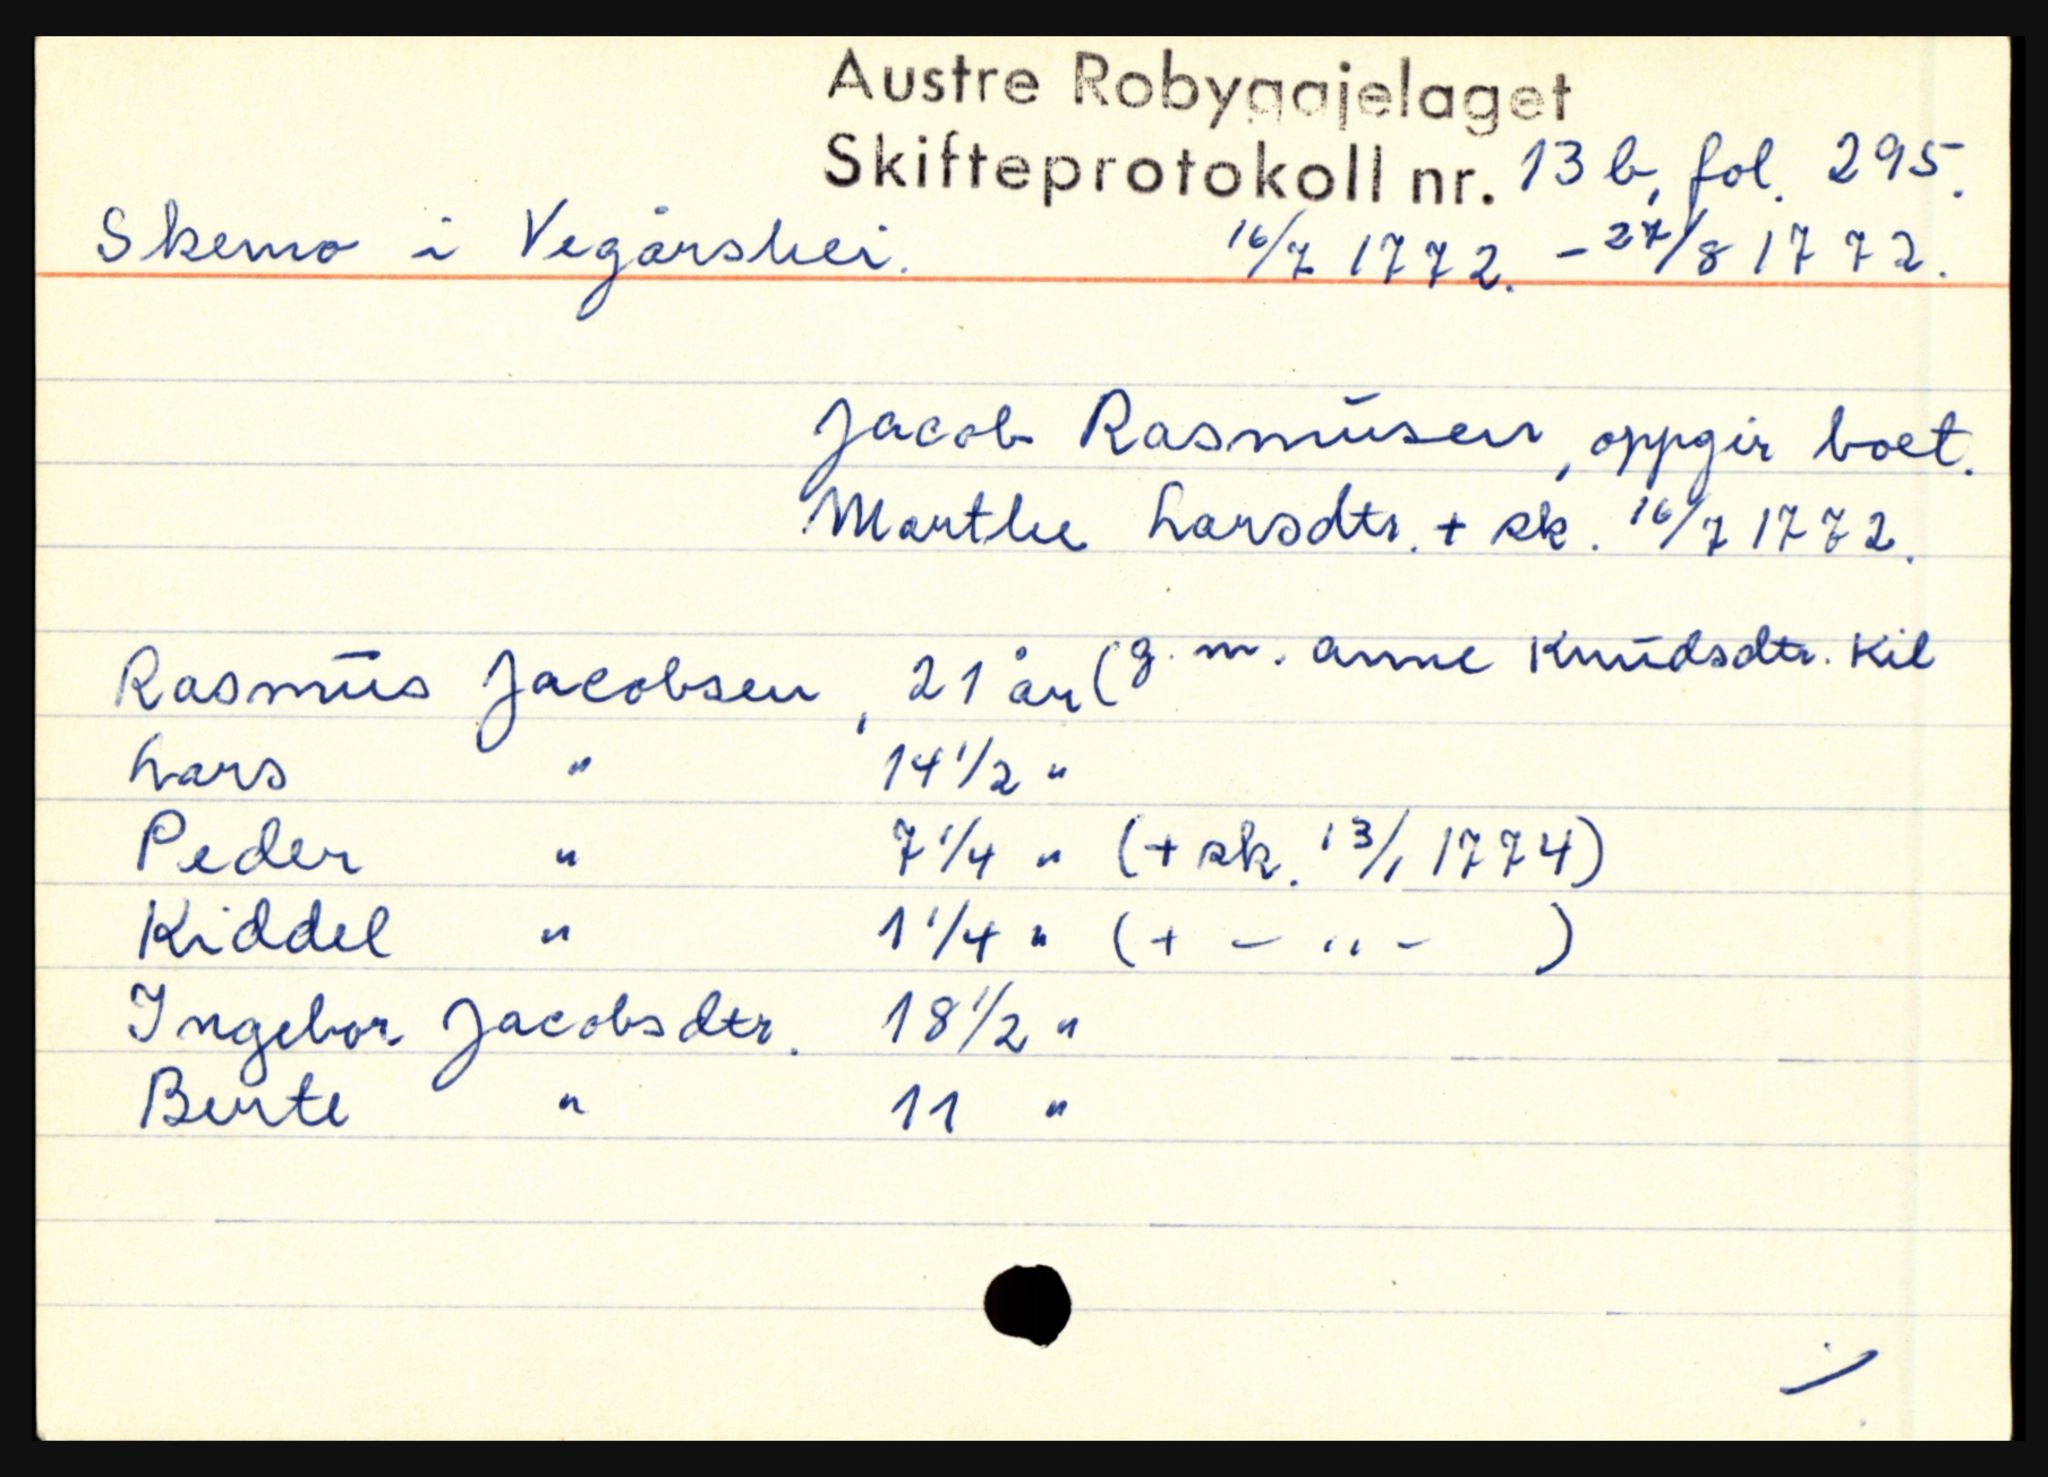 Austre Robyggjelaget
Skifteprotokoll nr. 13 b, fol. 295.
Skemo i Vegårshei. 16/7 1772. - 27/8 1772.
Jacob Rasmusen, oppgir boet.
Marthe Larsdtr. + sk. 16/7 1772.
Rasmus Jacobsen, 21 år (g. m. Anne Knudsdtr. Kil
Lars " 14 1/2 "
Peder " 7 1/4 " (+ sk. 13/1 1774)
Kiddel " 1 1/4 " (+ - " - )
Ingebor Jacobsdtr. 18 1/2 "
Berte " 11 "